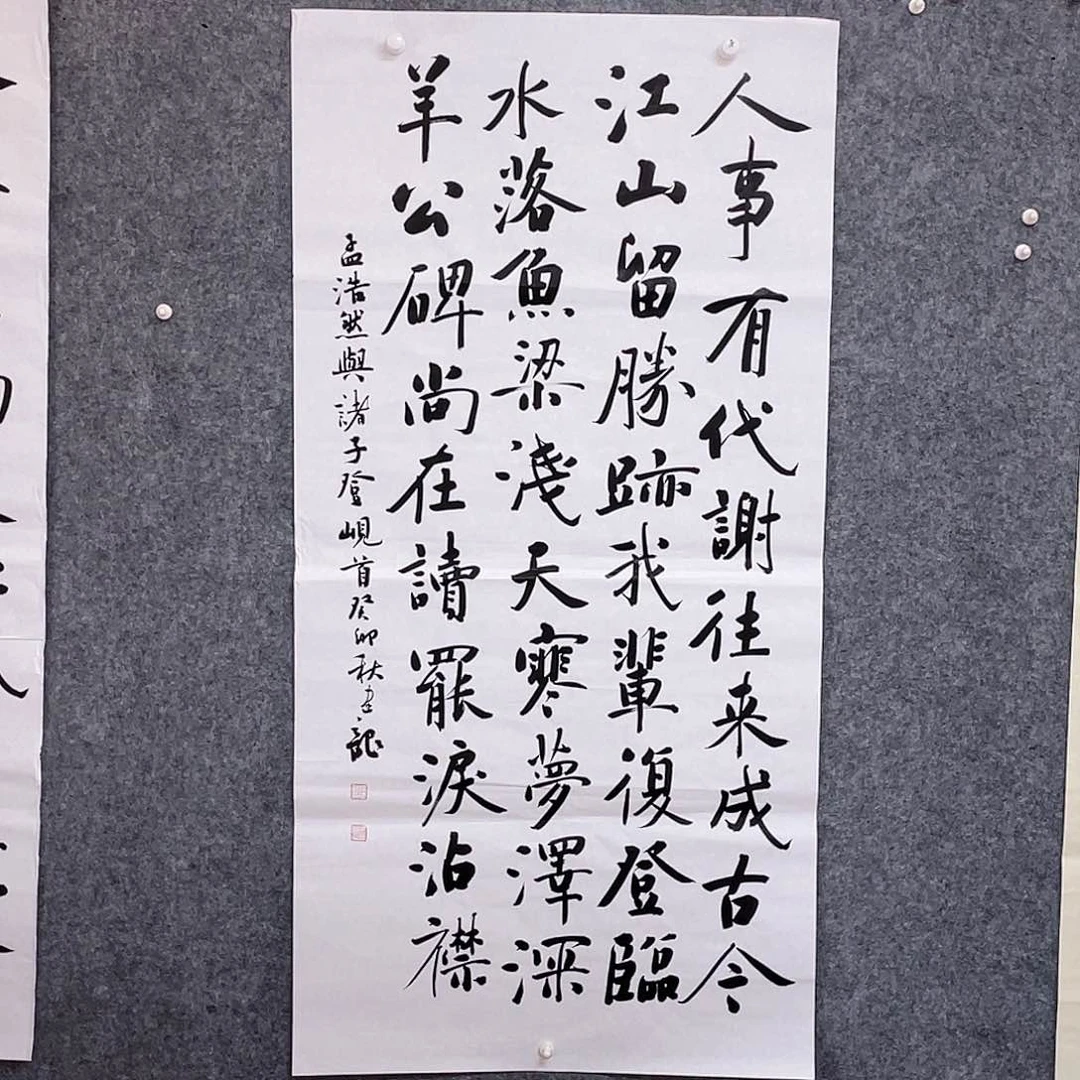 人事有代謝往来成古今
江山留勝跡我輩復登臨
水落魚梁淺天寒夢澤深
羊公碑尚在讀罷淚沾襟
孟浩然與諸子登峴首癸卯秋建龍